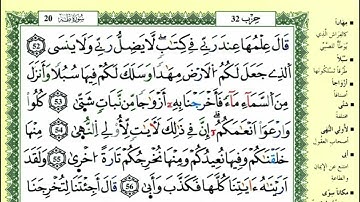 20 سُورَةُ طَهَ حِزْب 32
قَالَ عِلْمُهَا عِندَ رَبِّي فِي كِتَٰبٖ لَّا يَضِلُّ رَبِّي وَلَا يَنسَى 52
اَ۬لذِے جَعَلَ لَكُمُ اُ۬لَارْضَ مِهَٰداٗ وَسَلَكَ لَكُمْ فِيهَا سُبُلاٗ وَأَنزَلَ
مِنَ اَ۬لسَّمَآءِ مَآءٗ فَأَخْرَجْنَا بِهِۦٓ أَزْوَٰجاٗ مِّن نَّبَاتٖ شَتَّىٰ 53 كُلُوا
وَارْعَوَا اَنْعَٰمَكُمُۥٓ إِنَّ فِي ذَٰلِكَ لَأٓيَٰتٖ لِّأُوْلِي اِ۬لنُّهَىٰ 54 مِنْهَا
خَلَقْنَٰكُمْ وَفِيهَا نُعِيدُكُمْ وَمِنْهَا نُخْرِجُكُمْ تَارَةً اُخْرَىٰ 55 وَلَقَدَ
اَرَيْنَٰهُ ءَايَٰتِنَا كُلَّهَا فَكَذَّبَ وَأَبَىٰ 56 قَالَ أَجِئْتَنَا لِتُخْرِجَنَا
مِهَاداً
كالفراش الذي
سُبُلاً
طرقا تسلكونها
أزواجاً
أصنافا
شتى
مختلفة
لأولي النُّهى
أصحاب العقول
أبى
امتنع عن الإيمان
والطاعة
مكانا سوى